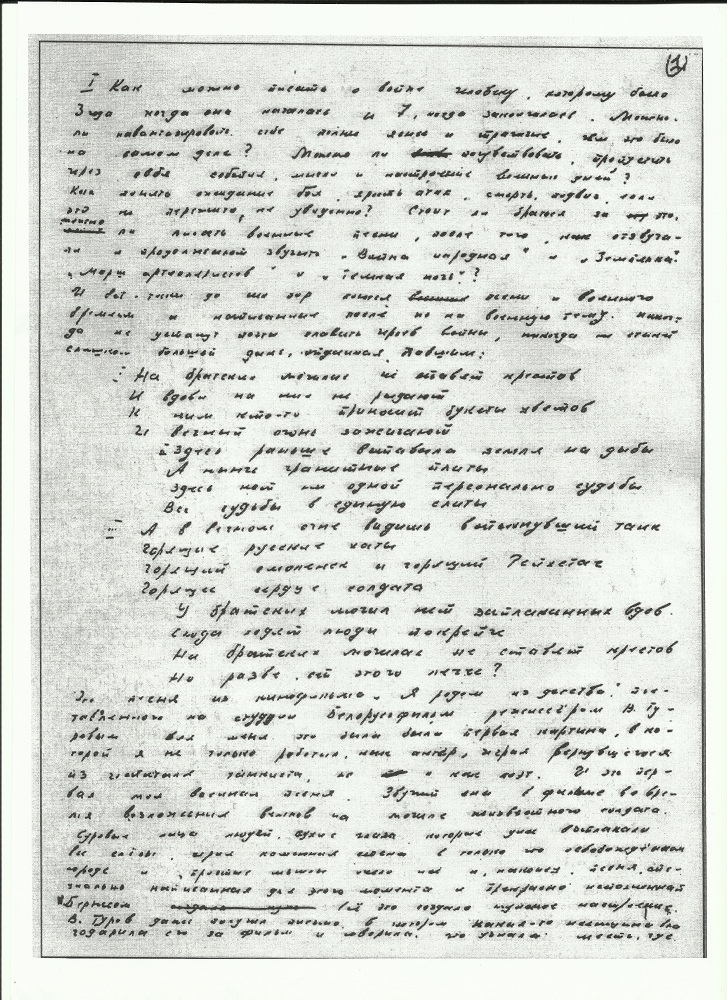 (1)
I Как можно писать о войне человеку, которому было
3 года когда она началась и 7, когда закончилась. Можно-
ли нафантазировать себе полнее яснее и трагичнее, чем это было
на самом деле? Можно ли почувствовать, пропустить
через себя события, мысли и настроение военных дней?
Как понять ожидание боя, ярость атак, смерть, подвиг, если
это не пережито, не увиденно? Стоит ли браться за это,
можно
ли писать военные песни, после того, как отзвуча-
ли и продолжают звучать „Война народная" и „Землянка".
„Марш артиллеристов" и „Темная ночь"?
И вот до сих пор поются песни и военного
времени и написанные после но на военную тему: никог-
да не устанут поэты славить героев войны, никогда не станет
слишком большой дань, отданная Павшим:
На братских могилах не ставят крестов
И вдовы на них не рыдают
К ним кто-то приносит букеты цветов
И вечный огонь зажигают
Здесь раньше вставала земля на дыбы
А нынче гранитные плиты
Здесь нет ни одной персональной судьбы
Все судьбы в единую слиты
А в вечном огне видишь вспыхнувший танк
Горящие русские хаты
Горящий Смоленск и горящий Рейхстаг
Горящее сердце солдата
У братских могил нет заплаканных вдов.
Сюда ходят люди покрепче
На братских могилах не ставят крестов
Но разве от этого легче?
Это песня из кинофильма „Я родом из детства", пос-
тавленного на студии Белорусьфильм режиссёром В. Ту-
ровым для меня это была первая картина, в ко-
торой я не только работал, как актёр, играя вернувшегося
из госпиталя танкиста, но и как поэт. И это пер-
вая моя военная песня. Звучит она в фильме во вре-
мя возложения венков на могиле неизвестного солдата.
Суровые лица людей, сухие глаза, которые уже выплакали
все слёзы, стена в только что освобождённом
городе и простые мысли и, наконец, песня, спе-
циально написанная для этого момента и прекрасно исполненная
Бернесом всё это создало нужное настроение.
В. Туров даже получил письмо, в котором какая-то женщина бла-
годарила его за фильм и говорила, что узнала место, где